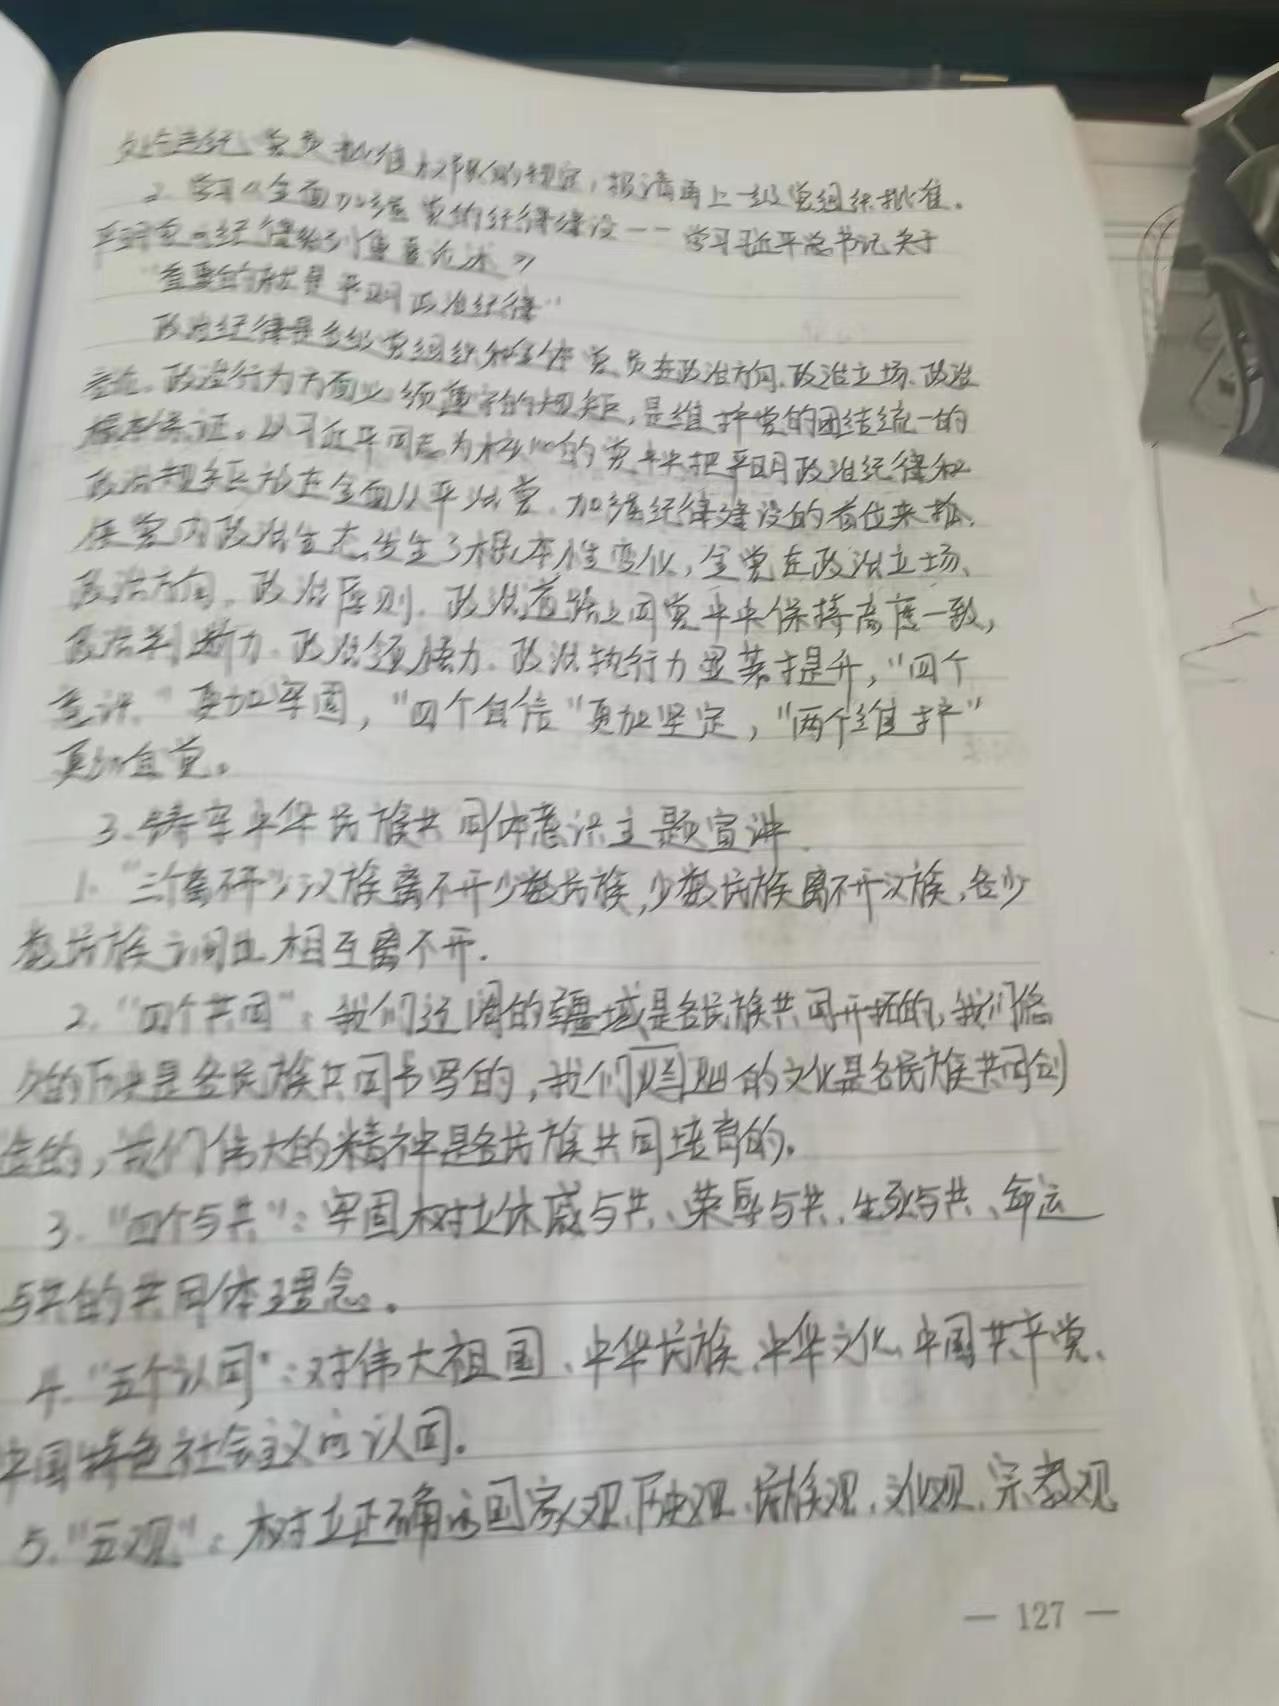 处与违纪、党员批准权限的规定，报请再上一级党组织批准。
2. 学习《全面加强党的纪律建设——学习习近平总书记关于
严明党的纪律系列重要论述》
"首要的就是严明政治纪律"
政治纪律是各级党组织和全体党员在政治方向、政治立场、政治
言论、政治行为方面必须遵守的规矩，是维护党的团结统一的
根本保证。以习近平同志为核心的党中央把严明政治纪律和
政治规矩放在全面从严治党、加强纪律建设的首位来抓，
使党内政治生态发生了根本性变化，全党在政治立场、
政治方向、政治原则、政治道路上同党中央保持高度一致，
政治判断力、政治领悟力、政治执行力显著提升，"四个
意识"更加牢固，"四个自信"更加坚定，"两个维护"
更加自觉。
3. 铸牢中华民族共同体意识主题宣讲
1. "三个离不开"：汉族离不开少数民族，少数民族离不开汉族，各少
数民族之间也相互离不开.
2. "四个共同"：我们辽阔的疆域是各民族共同开拓的，我们悠
久的历史是各民族共同书写的，我们灿烂的文化是各民族共同创
造的，我们伟大的精神是各民族共同培育的。
3. "四个与共"：牢固树立休戚与共、荣辱与共、生死与共、命运
与共的共同体理念。
4. "五个认同"：对伟大祖国、中华民族、中华文化、中国共产党、
中国特色社会主义的认同。
5. "五观"：树立正确的国家观、历史观、民族观、文化观、宗教观
— 127 —